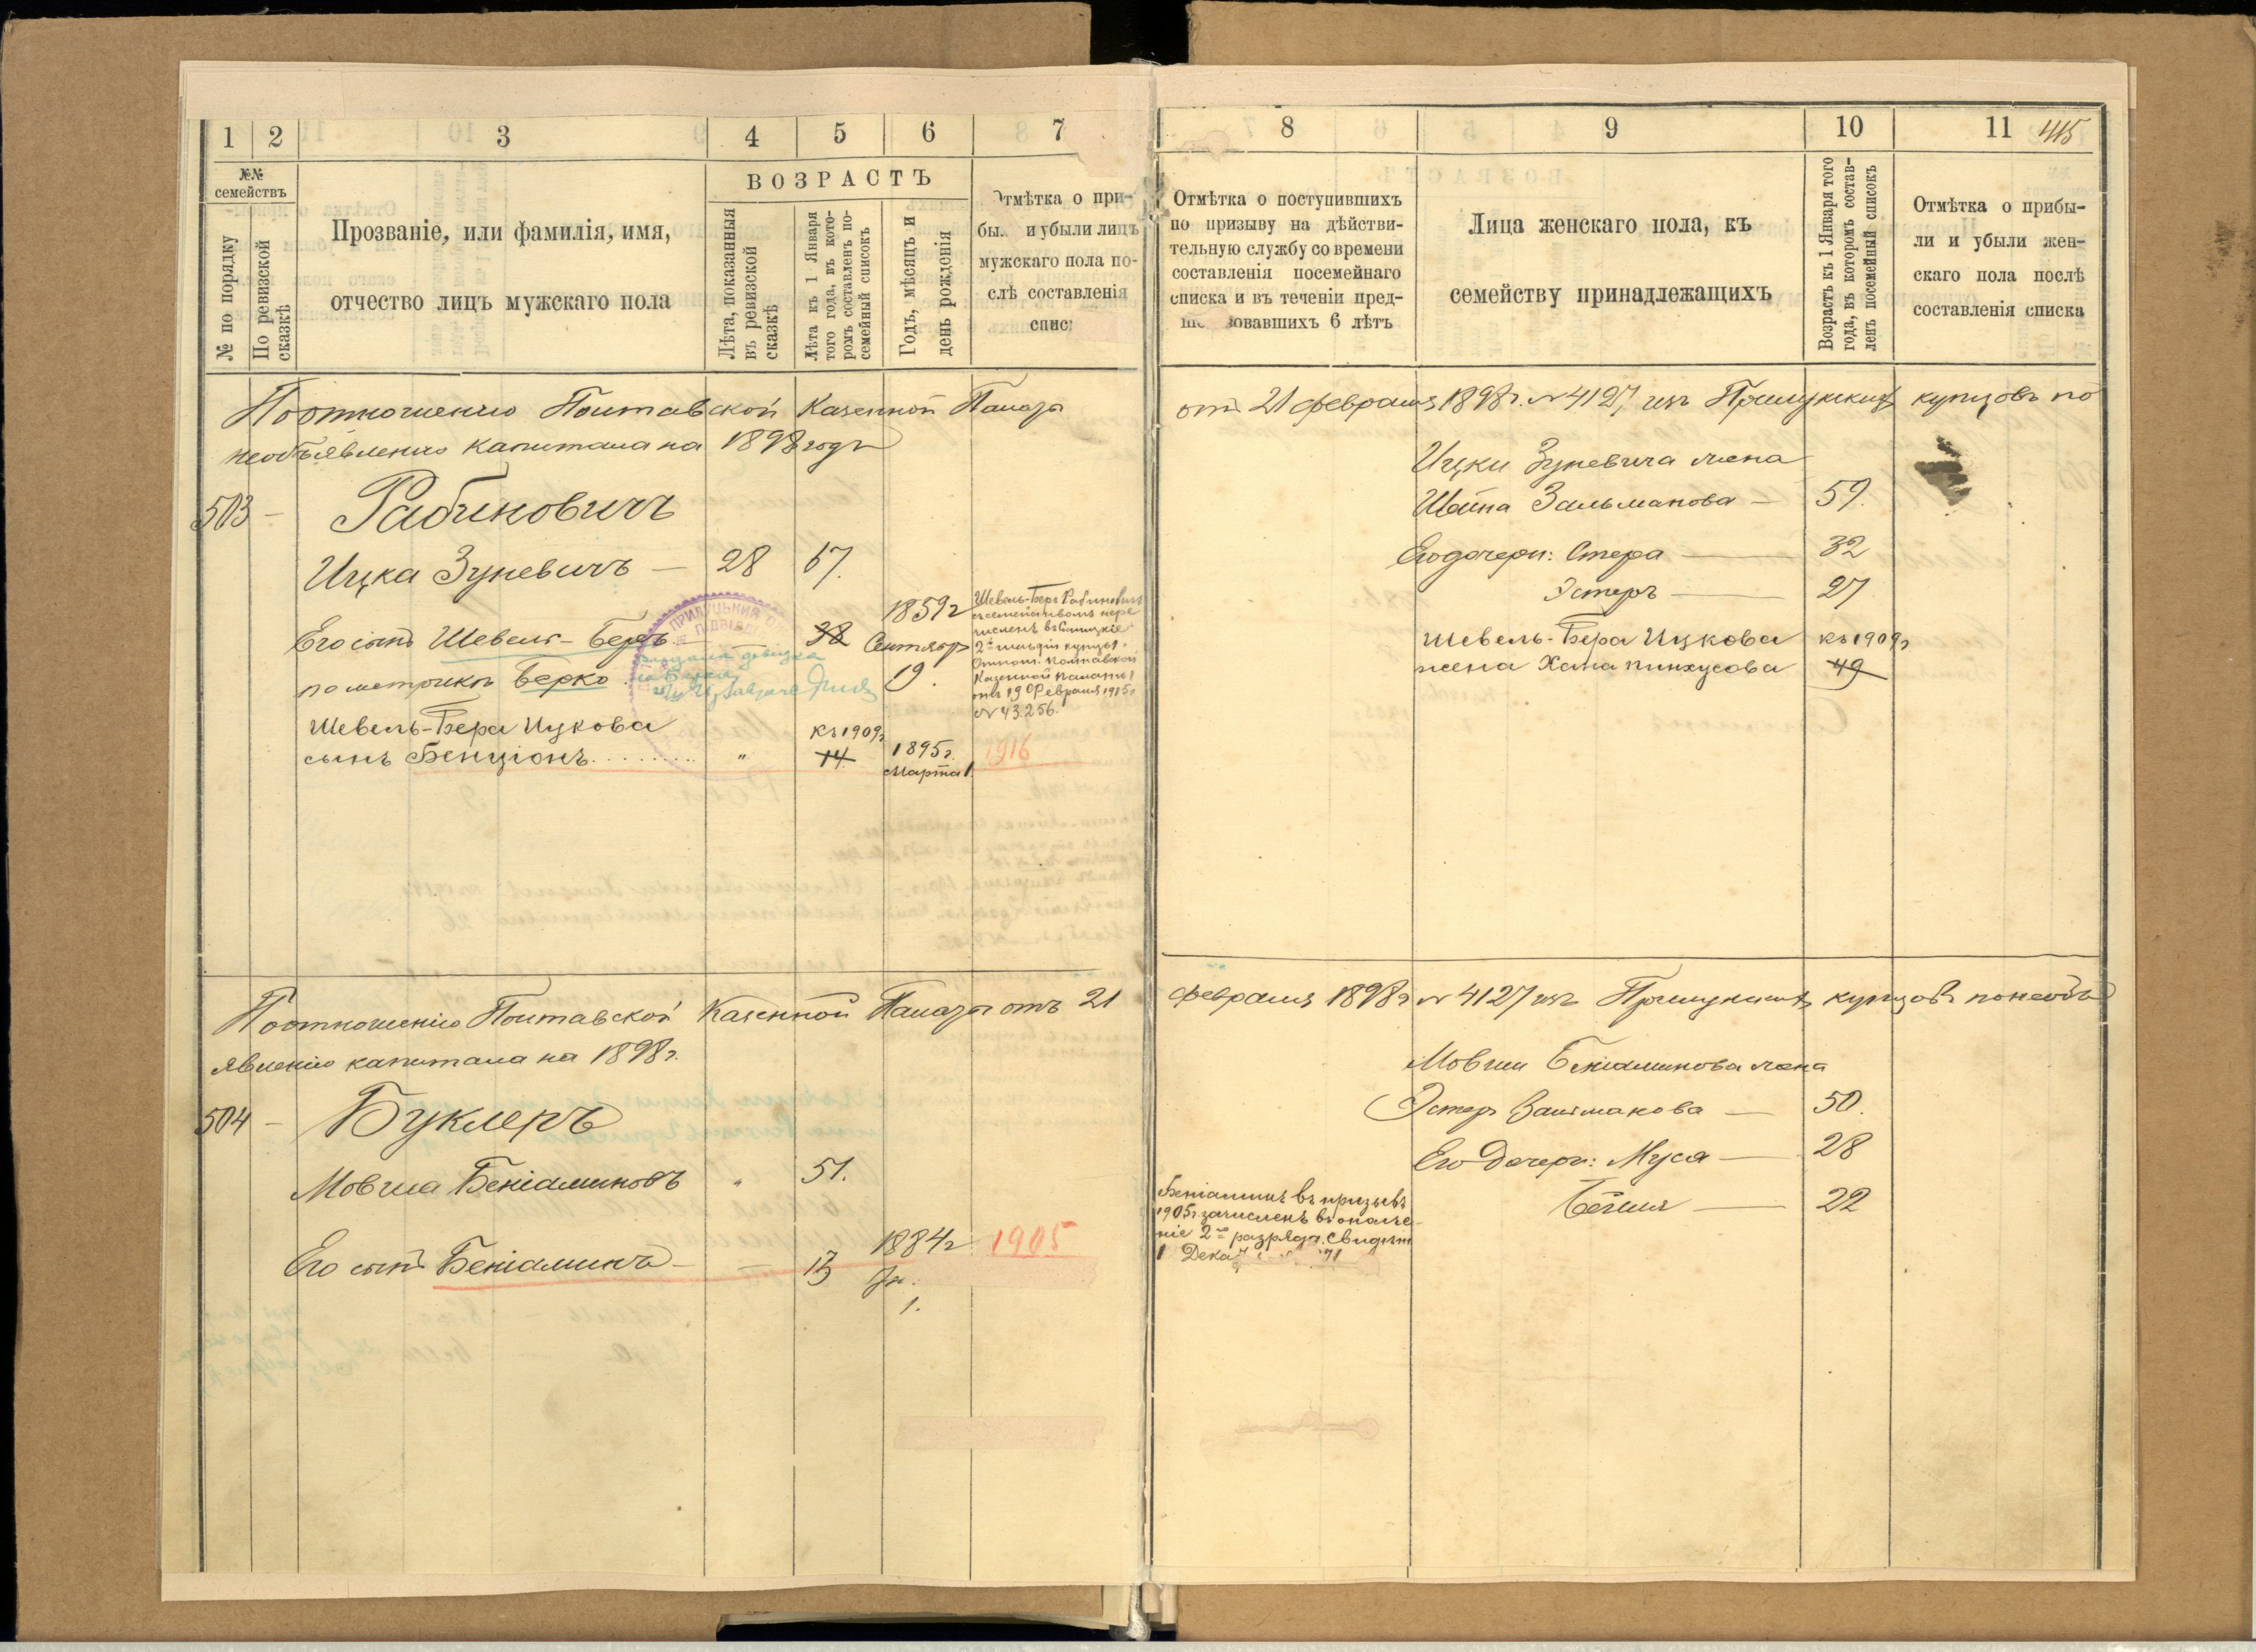 1 2 3 4 5 6 7
№№ семействъ
№ по порядку
По ревизской сказкѣ
Прозваніе, или фамилія, имя,
отчество лицъ мужскаго пола
ВОЗРАСТЪ
Лѣта, показанныя
въ ревизской
сказкѣ
Лѣта къ 1 Января
того года, въ кото-
ромъ составленъ по-
семейный списокъ
Годъ, мѣсяцъ и
день рожденія
Отмѣтка о при-
бы. и убыли лицъ
мужскаго пола по-
слѣ составленія
спис
По отношенію Полтавской Казенной Палаты
необъявленію капитала на 1898 годъ
503 — Рабиновичъ
Ицка Зуневичъ — 28 67.
Его сынъ Шевель-Беръ — 38
1859 г
Сентября
19.
по метрикѣ Берко
Шевель-Беръ Рабиновичъ
съ семействомъ пере
численъ въ
2й гильдіи купцы.
Отнош. Полтавской
Казенной Палаты
отъ 19 Февраля 1915 г
№ 43.256.
ПРИЛУЦЬКИЙ
Шевель-Бера Ицкова къ 1909 г
сынъ Бенціонъ . . . . . . . . „ 14 1895 г. 1916
Марта 1.
По отношенію Полтавской Казенной Палаты отъ 21
явленію капитала на 1898 г.
504 — Буклеръ
Мовша Беніаминовъ „ 51.
Его сынъ Беніаминъ — — 13
1884 г 1905
Ян.
1.
8 9 10 11 415
Отмѣтка о поступившихъ
по призыву на дѣйстви-
тельную службу со времени
составленія посемейнаго
списка и въ теченіи пред-
ше вовавшихъ 6 лѣтъ
Лица женскаго пола, къ
семейству принадлежащихъ
Возрастъ къ 1 Января того
года, въ которомъ состав-
ленъ посемейный списокъ
Отмѣтка о прибы-
ли и убыли жен-
скаго пола послѣ
составленія списка
отъ 21 февраля 1898 г. № 4127, изъ Прилукскихъ купцовъ по
Ицки Зуневича жена
Шейна Зальманова — 59.
Его дочери: Стера — 32
Эстеръ — 27
Шевель-Бера Ицкова къ 1909 г.
жена Хана Пинхусова 49
февраля 1898 г № 4127 изъ Прилукскихъ купцовъ по необъ
Мовши Беніаминова жена
Эстеръ Зальманова — 50.
Его дочери: Муся — 28
Бейля — 22
Беніаминъ въ призывъ
1905 г. зачисленъ въ ополче-
ніе 2го разряда. Свидѣт
1 Дека